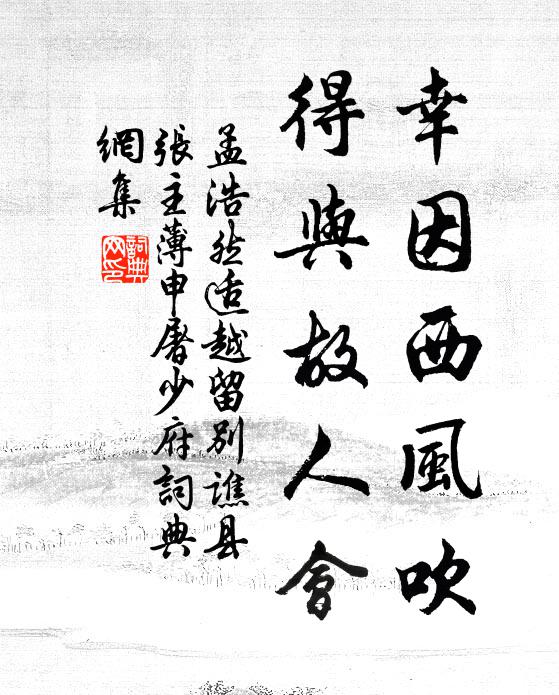 幸因西風吹
得與故人會
孟浩然适越留別譙县
張主薄申屠少府詞典
網集
詞典網印